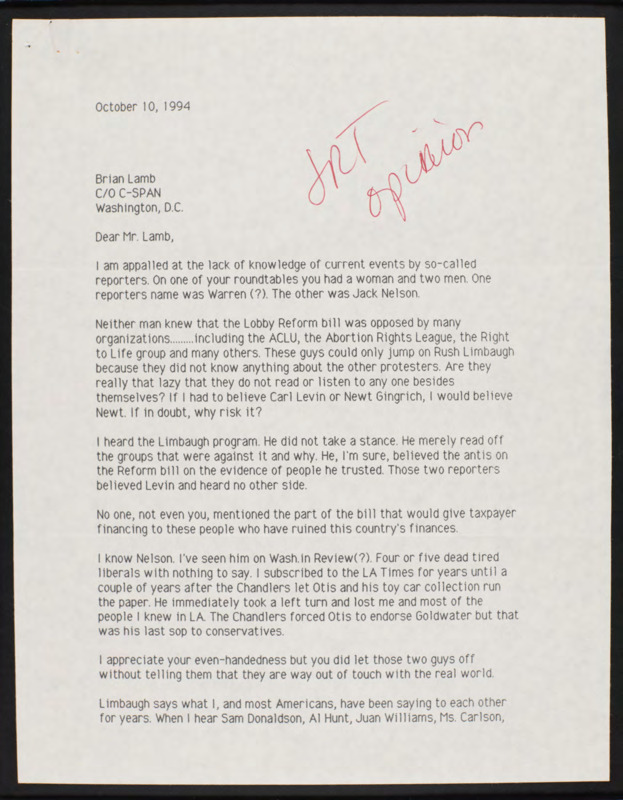 October 10, 1994
JRT
opinion
Brian Lamb
C/O C-SPAN
Washington, D.C.
Dear Mr. Lamb,
I am appalled at the lack of knowledge of current events by so-called
reporters. On one of your roundtables you had a woman and two men. One
reporters name was Warren (?). The other was Jack Nelson.
Neither man knew that the Lobby Reform bill was opposed by many
organizations.........including the ACLU, the Abortion Rights League, the Right
to Life group and many others. These guys could only jump on Rush Limbaugh
because they did not know anything about the other protesters. Are they
really that lazy that they do not read or listen to any one besides
themselves? If I had to believe Carl Levin or Newt Gingrich, I would believe
Newt. If in doubt, why risk it?
I heard the Limbaugh program. He did not take a stance. He merely read off
the groups that were against it and why. He, I'm sure, believed the antis on
the Reform bill on the evidence of people he trusted. Those two reporters
believed Levin and heard no other side.
No one, not even you, mentioned the part of the bill that would give taxpayer
financing to these people who have ruined this country's finances.
I know Nelson. I've seen him on Wash.in Review(?). Four or five dead tired
liberals with nothing to say. I subscribed to the LA Times for years until a
couple of years after the Chandlers let Otis and his toy car collection run
the paper. He immediately took a left turn and lost me and most of the
people I knew in LA. The Chandlers forced Otis to endorse Goldwater but that
was his last sop to conservatives.
I appreciate your even-handedness but you did let those two guys off
without telling them that they are way out of touch with the real world.
Limbaugh says what I, and most Americans, have been saying to each other
for years. When I hear Sam Donaldson, Al Hunt, Juan Williams, Ms. Carlson,